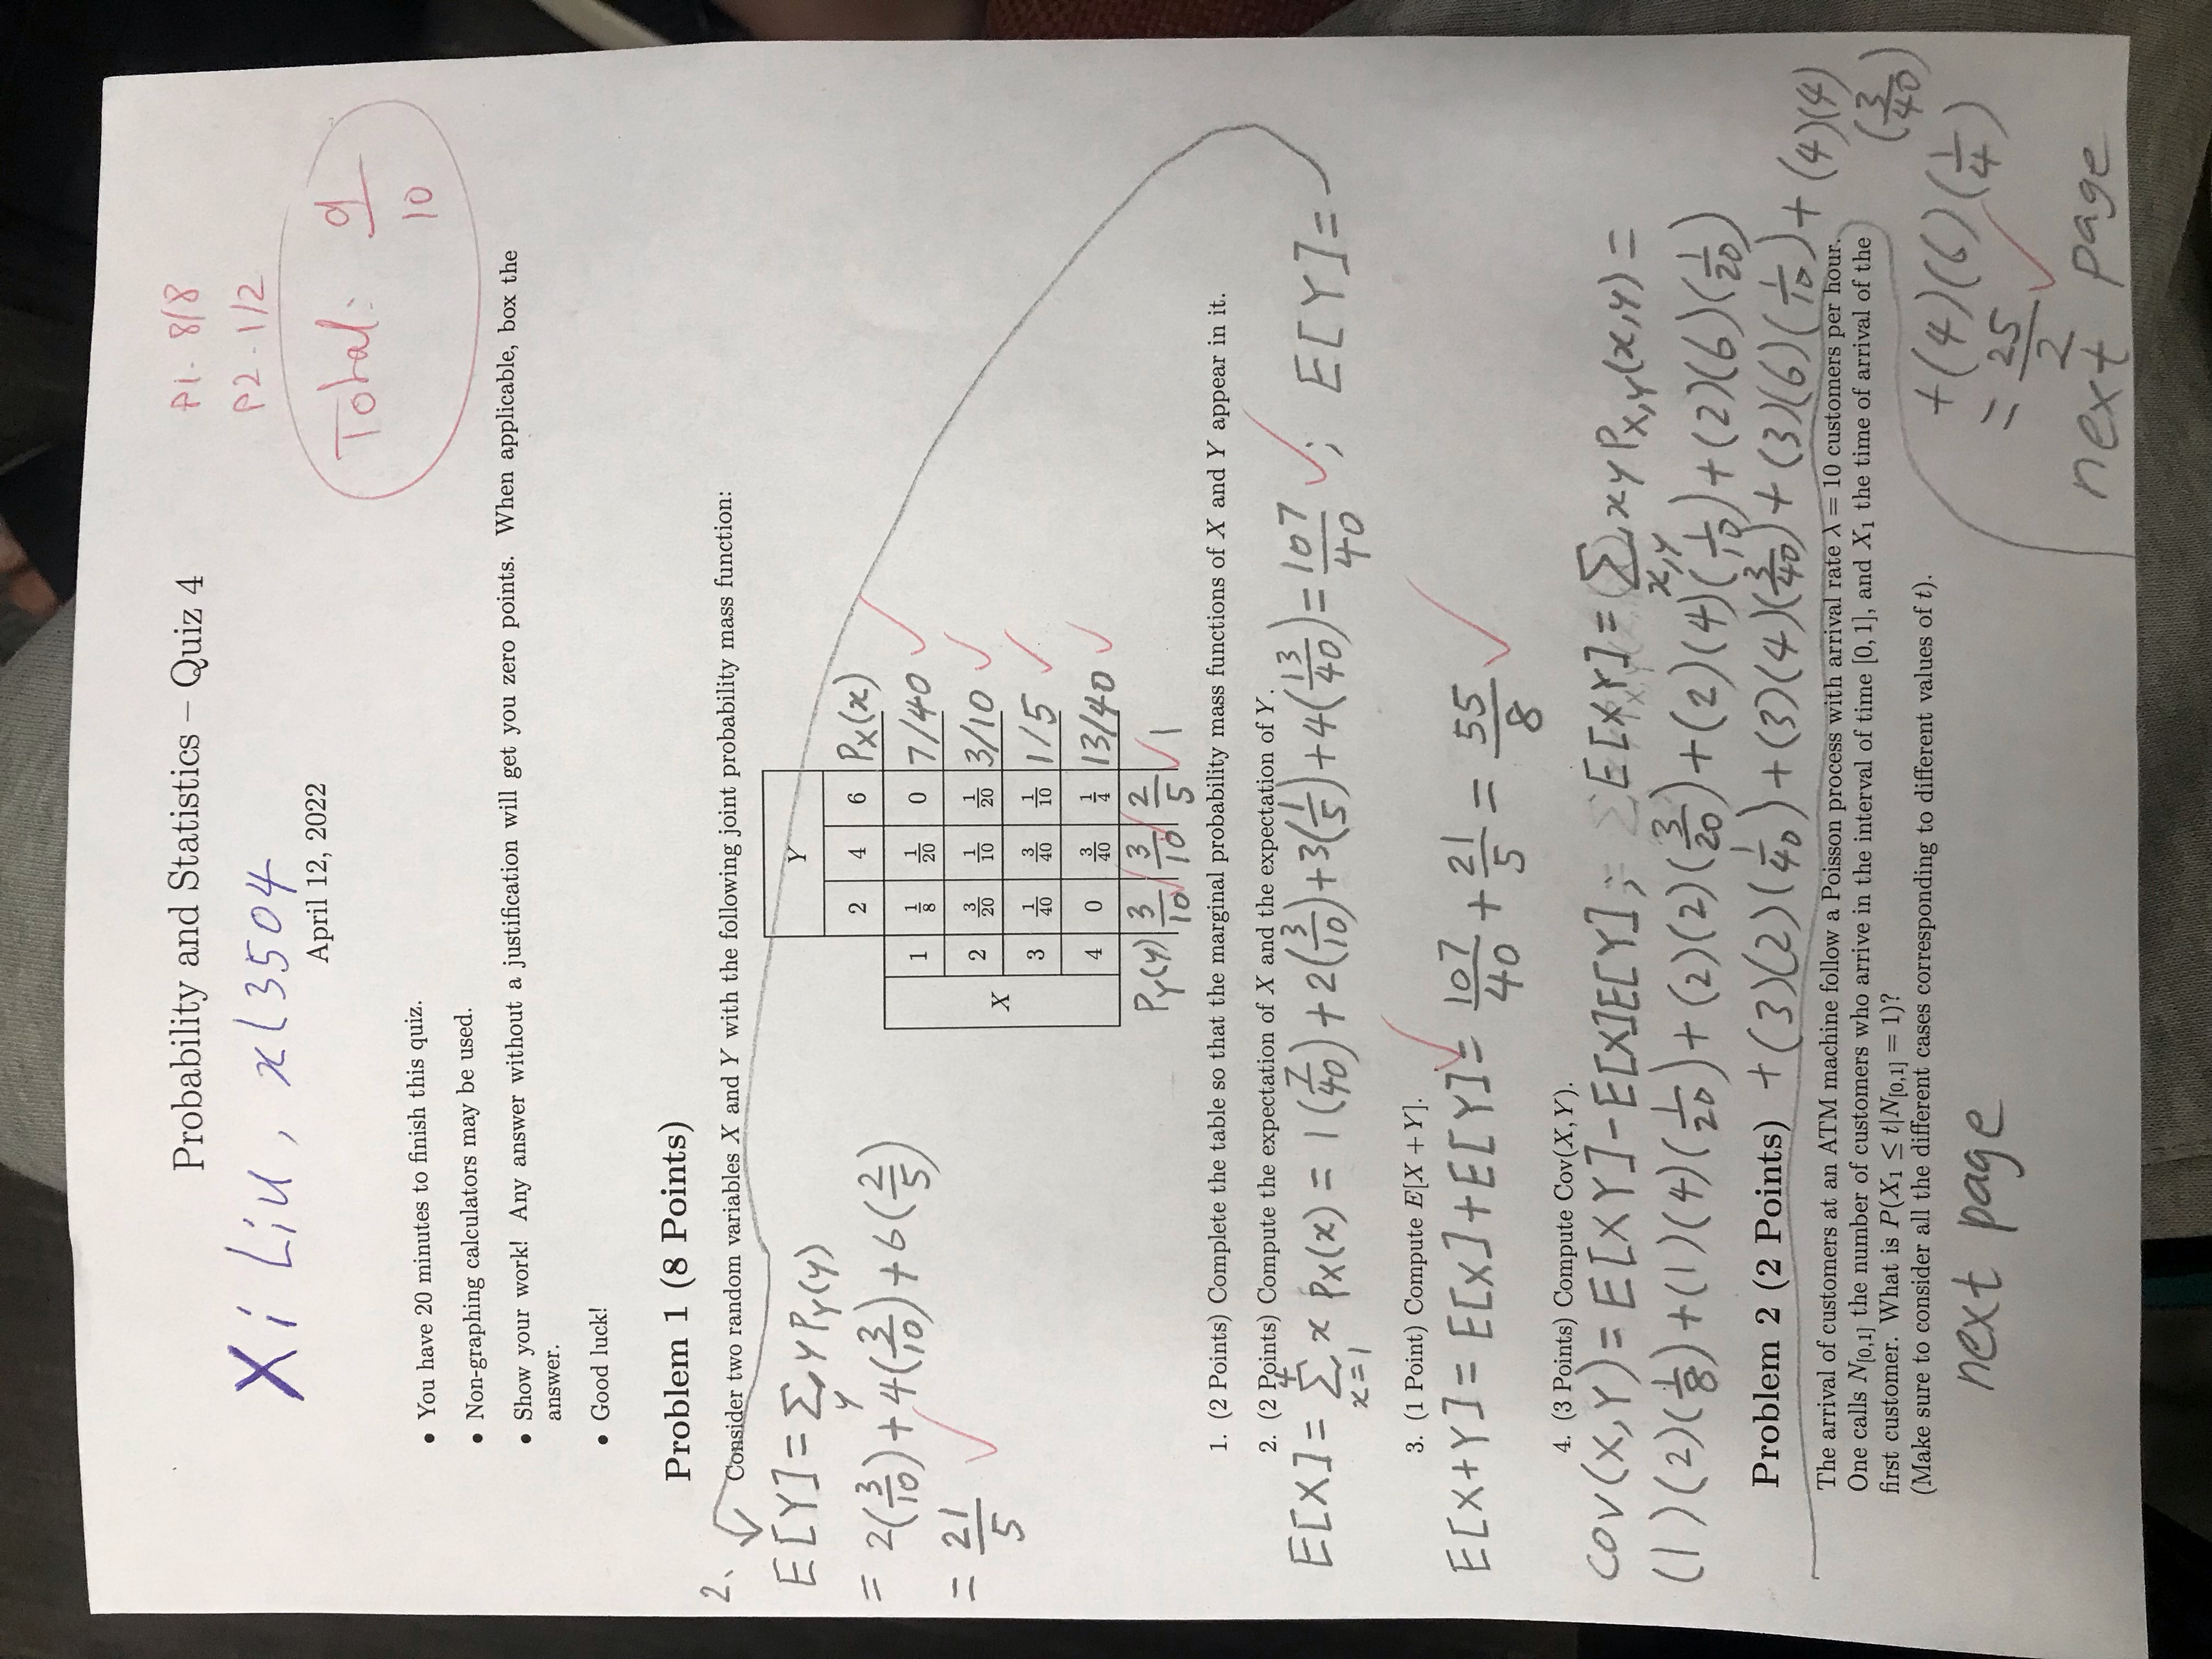 Probability and Statistics – Quiz 4
P1- 8/8
P2 - 1/2
Xi Liu, xl3504
April 12, 2022
Total: 9/10
• You have 20 minutes to finish this quiz.
• Non-graphing calculators may be used.
• Show your work! Any answer without a justification will get you zero points. When applicable, box the
answer.
• Good luck!
Problem 1 (8 Points)
2.
Consider two random variables X and Y with the following joint probability mass function:
E[Y] = Σ_y y P_Y(y)
= 2(3/10) + 4(3/10) + 6(2/5)
= 21/5 ✓
Y
2 4 6 P_X(x)
X
1 1/8 1/20 0 7/40 ✓
2 3/20 1/10 1/20 3/10 ✓
3 1/40 3/40 1/10 1/5 ✓
4 0 3/40 1/4 13/40 ✓
P_Y(y) 3/10 ✓ 3/10 ✓ 2/5 ✓ 1
1. (2 Points) Complete the table so that the marginal probability mass functions of X and Y appear in it.
2. (2 Points) Compute the expectation of X and the expectation of Y.
E[X] = Σ_{x=1}^{4} x P_X(x) = 1(7/40) + 2(3/10) + 3(1/5) + 4(13/40) = 107/40 ✓; E[Y] =
3. (1 Point) Compute E[X + Y].
E[X+Y] = E[X] + E[Y] ✓ = 107/40 + 21/5 = 55/8 ✓
4. (3 Points) Compute Cov(X, Y).
cov(X,Y) = E[XY] - E[X]E[Y]; E[XY] = Σ_{x,y} xy P_{X,Y}(x,y) =
(1)(2)(1/8) + (1)(4)(1/20) + (2)(2)(3/20) + (2)(4)(1/10) + (2)(6)(1/20)
Problem 2 (2 Points) + (3)(2)(1/40) + (3)(4)(3/40) + (3)(6)(1/10) + (4)(4)
(3/40)
+ (4)(6)(1/4)
= 25/2 ✓
next page
The arrival of customers at an ATM machine follow a Poisson process with arrival rate λ = 10 customers per hour.
One calls N_{[0,1]} the number of customers who arrive in the interval of time [0, 1], and X_1 the time of arrival of the
first customer. What is P(X_1 ≤ t|N_{[0,1]} = 1)?
(Make sure to consider all the different cases corresponding to different values of t).
next page